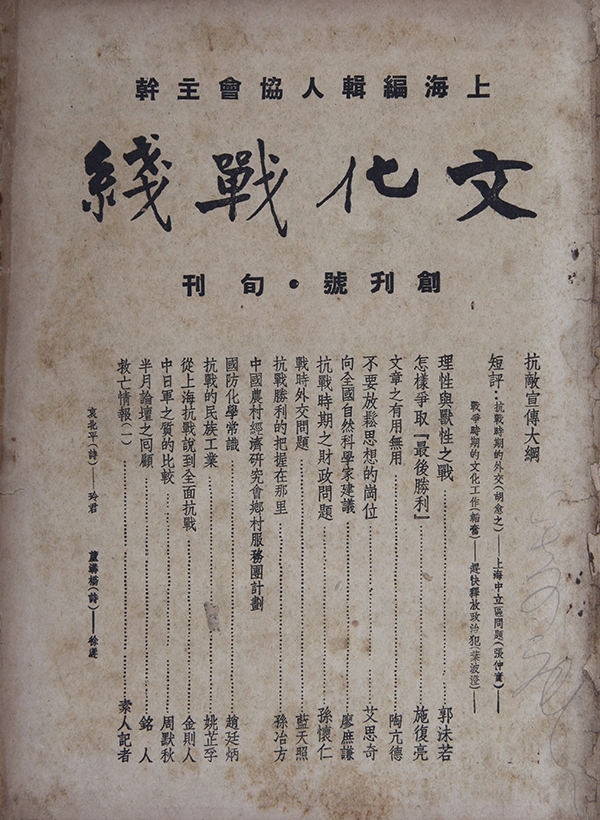 上海編輯人協會主幹
文化戰綫
創刊號・旬刊
抗敵宣傳大綱
短評：抗戰時期的外交（胡愈之）——上海中立區問題（張仲實）——
戰爭時期的文化工作（韜奮）——趕快釋放政治犯（葉波澄）——
理性與獸性之戰……郭沫若
怎樣爭取『最後勝利』……施復亮
文章之有用無用……陶亢德
不要放鬆思想的崗位……艾思奇
向全國自然科學家建議……廖庶謙
抗戰時期之財政問題……孫懷仁
戰時外交問題……藍天照
抗戰勝利的把握在那里……孫冶方
中國農村經濟研究會鄉村服務團計劃
國防化學常識……趙廷炳
抗戰的民族工業……姚芷孚
從上海抗戰說到全面抗戰……金則人
中日軍之質的比較……周默秋
半月論壇之回顧……銘人
救亡情報（一）……素人記者
哀北平（詩）——玲君
蘆溝橋（詩）——徐遲